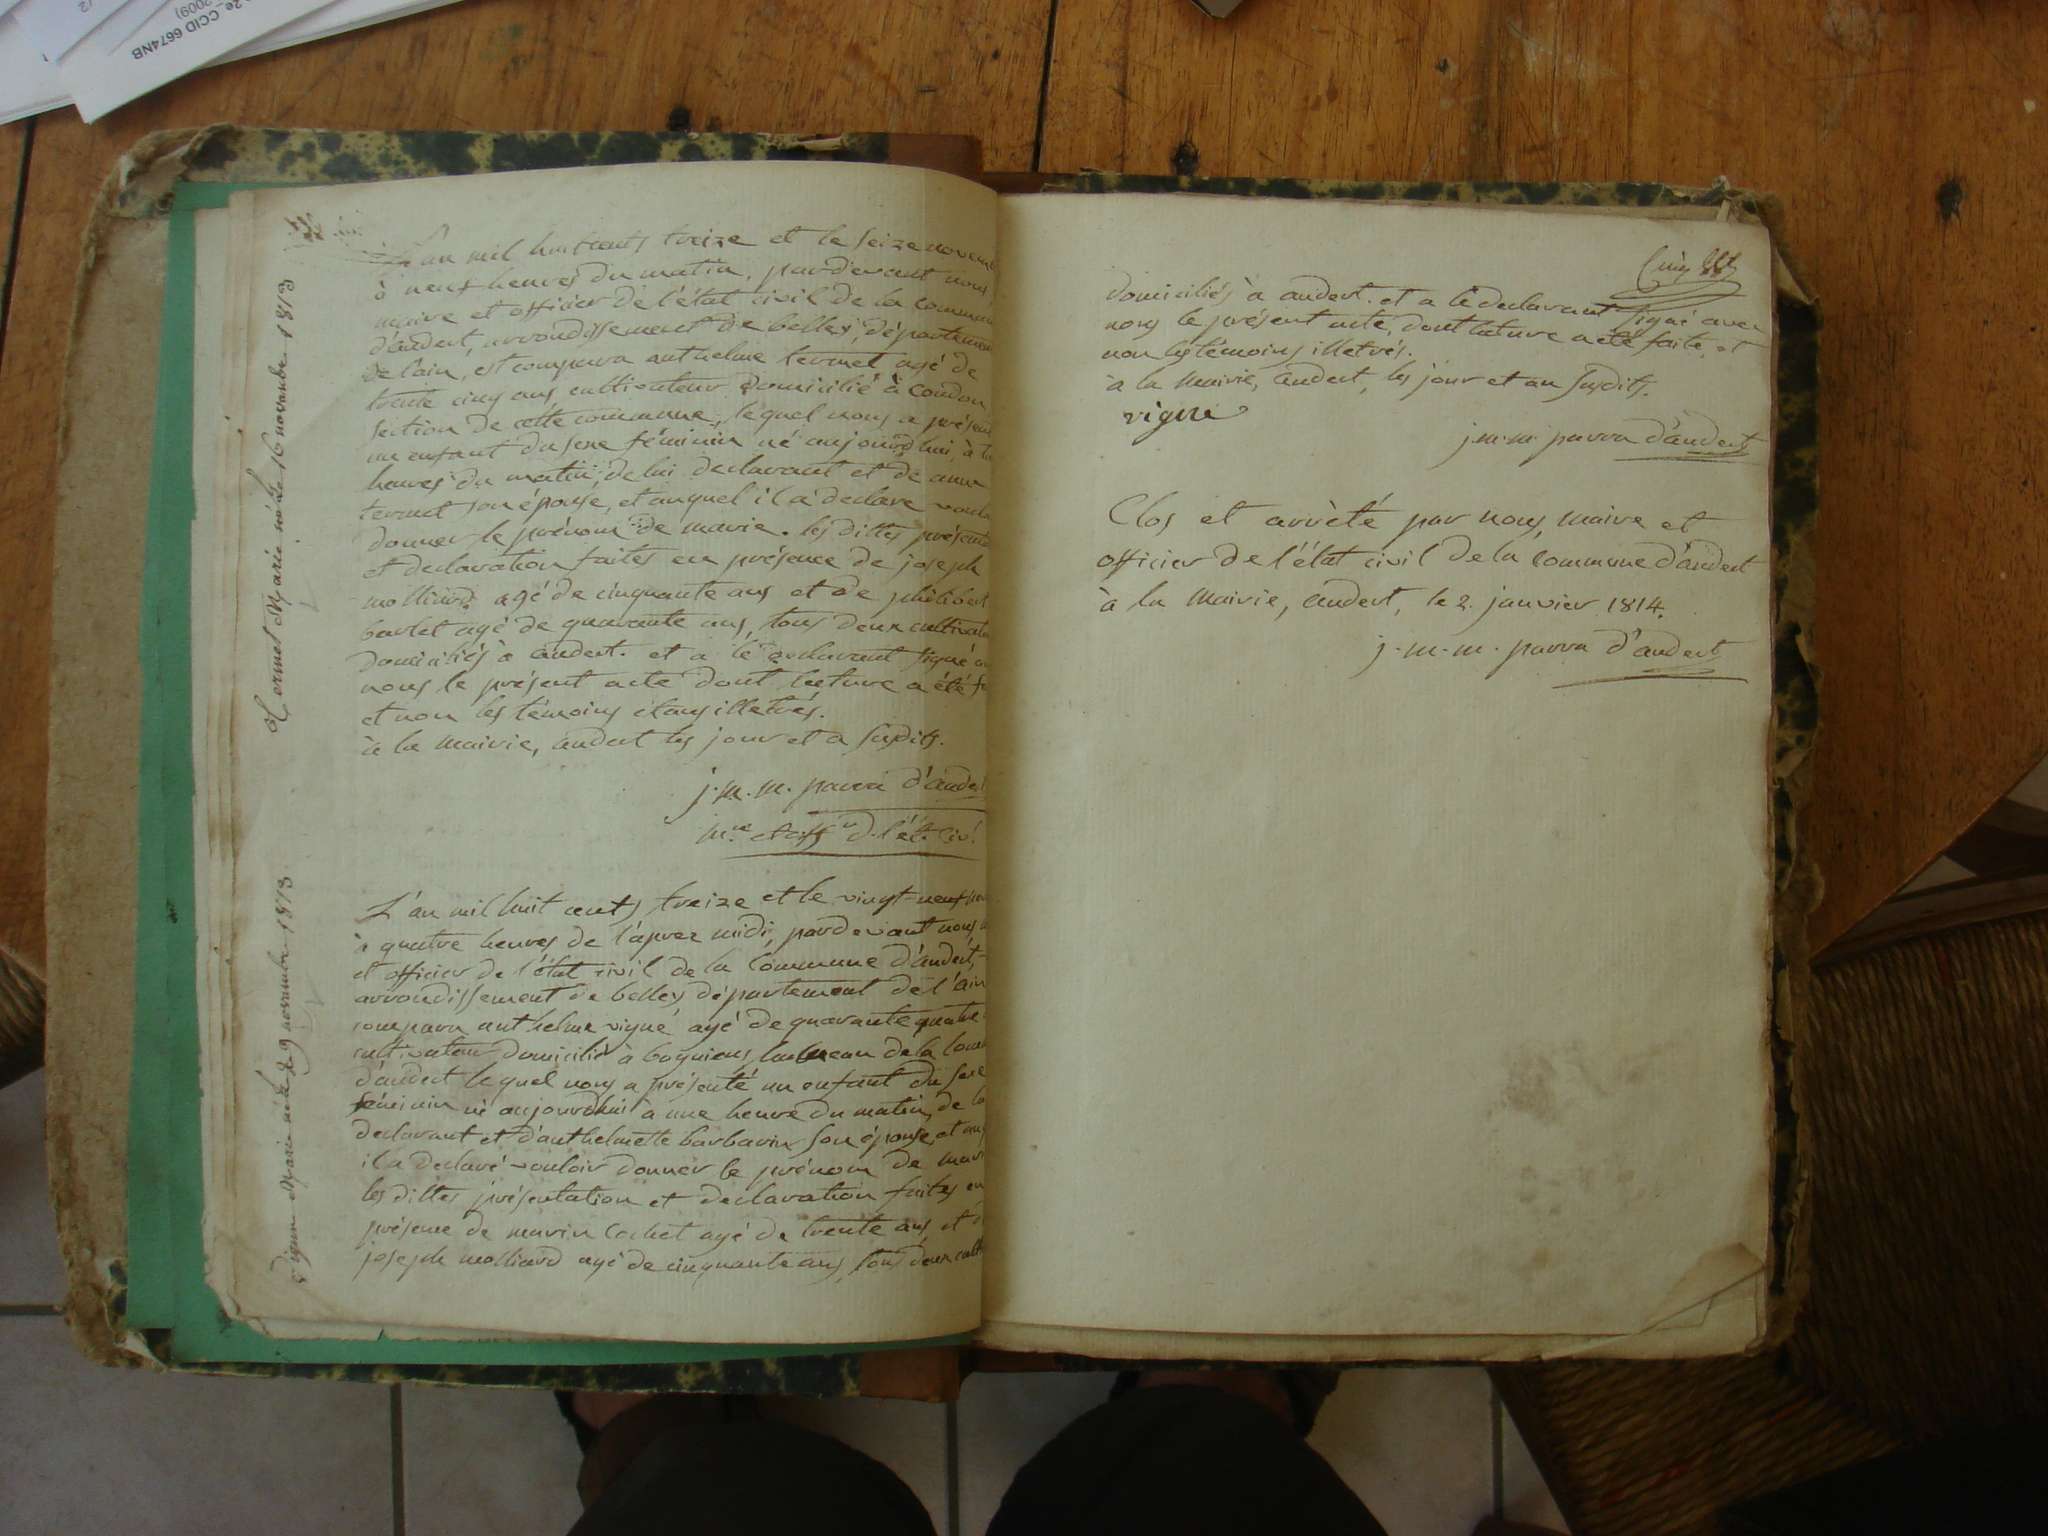 2e_CCID 6674NB
2009)
Termet Marie née le 16 novembre 1813
L'an mil huit cents treize et le seize novem
à neuf heures du matin, pardevant nous
maire et officier de l'état civil de la commun
d'andert, arrondissement de belley, départemen
de l'ain, est comparu anthelme termet agé de
trente cinq ans, cultivateur domicilié à Condon
section de cette commune, lequel nous a présen
un enfant du sexe féminin né aujourd'hui, à
heures du matin, de lui declarant et de
termet son épouse, et auquel il a declare voul
donner le prénom de marie. les dittes présenta
et declaration faites en présence de joseph
molliard agé de cinquante ans et de philibert
bartet agé de quarante ans, tous deux cultivat
domiciliés à andert. et a le declarant signé
nous le présent acte dont lecture a été f
et non les témoins étans illetrés.
à la mairie, andert les jour et a susdits.
j. m. m. parra d'andert
m.re et off.r d. l'ét. civ.
vigne Marie née le 29 novembre 1813
L'an mil huit cents treize et le vingt-neuf nov
à quatre heures de l'aprez midi, pardevant nous,
et officier de l'état civil de la Commune d'andert,
arrondissement de belley département de l'ain
comparu anthelme vigne agé de quarante quatre
cultivateur domicilié à bogniens, hameau de la Com
d'andert lequel nous a présenté un enfant du sexe
féminin né aujourdhui à une heure du matin, de
declarant et d'anthelmette barbarin son épouse, et auq
il a declaré vouloir donner le prénom de mari
les dittes présentation et declaration faites en
présence de marin Cochet agé de trente ans, et d
joseph molliard agé de cinquante ans, tous deux cult
Cinq
domiciliés à andert. et a le declarant signé avec
nous le présent acte, dont lecture a été faite, et
non les témoins illetrés.
à la Mairie, andert, les jour et an susdits.
vigne
j. m. m. parra d'andert
Clos et arrêté par nous, maire et
officier de l'état civil de la Commune d'andert
à la Mairie, andert, le 2. janvier 1814.
j. m. m. parra d'andert